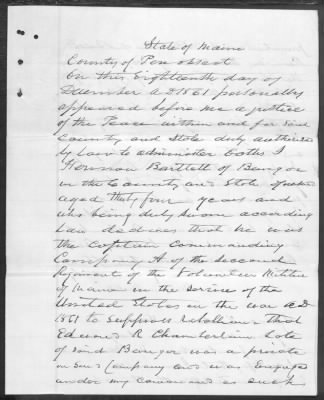 State of Maine
County of Penobscot
On this Eighteenth day of
December A D 1861 personally
appeared before me a justice
of the Peace within and for said
County and State duly authorized
by law to administer oaths
Herman Bartlett of Bangor
in the County and State
aged thirty four years and
who being duly sworn according
law declares that he was
the Captain Commanding
Company A of the Second
Regiment of the Volunteer Militia
of Maine in the service of the
United States in the war A D
1861 to suppress rebellion that
Edward R Chamberlain late
of said Bangor was a private
in said Company and was engaged
under my command as such